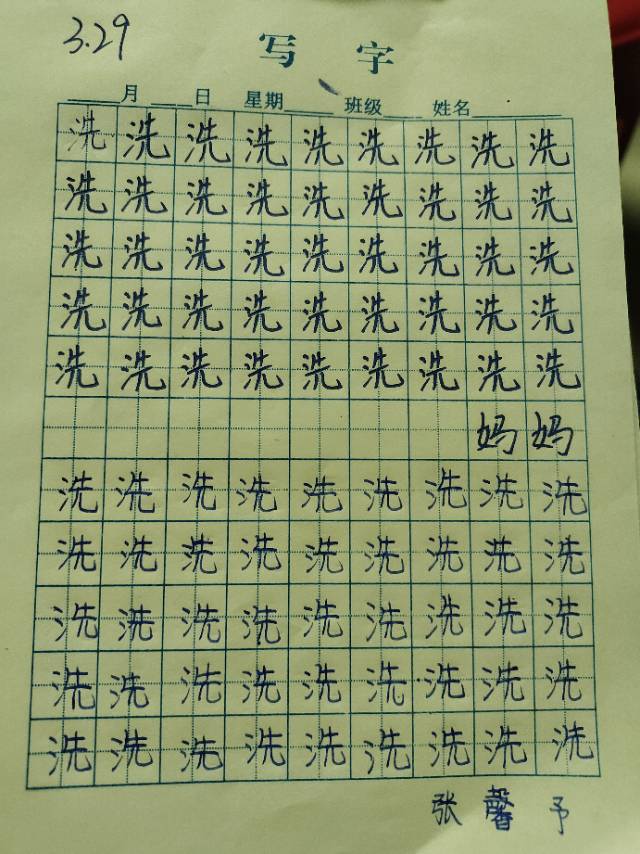 3.29
写 字
____月____日 星期____ 班级____ 姓名________
洗 洗 洗 洗 洗 洗 洗 洗 洗
洗 洗 洗 洗 洗 洗 洗 洗 洗
洗 洗 洗 洗 洗 洗 洗 洗 洗
洗 洗 洗 洗 洗 洗 洗 洗 洗
洗 洗 洗 洗 洗 洗 洗 洗 洗
妈 妈
洗 洗 洗 洗 洗 洗 洗 洗 洗
洗 洗 洗 洗 洗 洗 洗 洗 洗
洗 洗 洗 洗 洗 洗 洗 洗 洗
洗 洗 洗 洗 洗 洗 洗 洗 洗
洗 洗 洗 洗 洗 洗 洗 洗 洗
张 馨 予